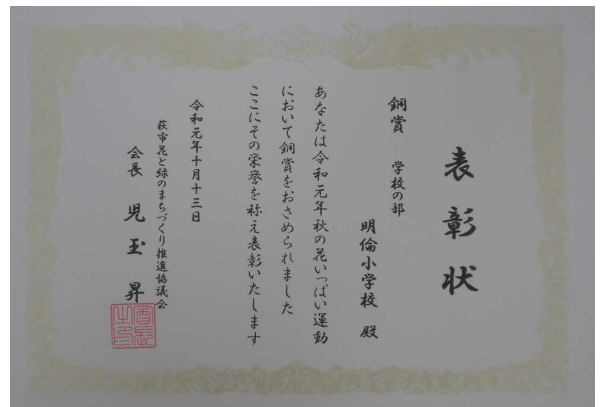 表彰状
銅賞 学校の部
明倫小学校 殿
あなたは令和元年秋の花いっぱい運動
において銅賞をおさめられました
ここにその栄誉を称え表彰いたします
令和元年十月十三日
萩市花と緑のまちづくり推進協議会
会長 児玉 昇